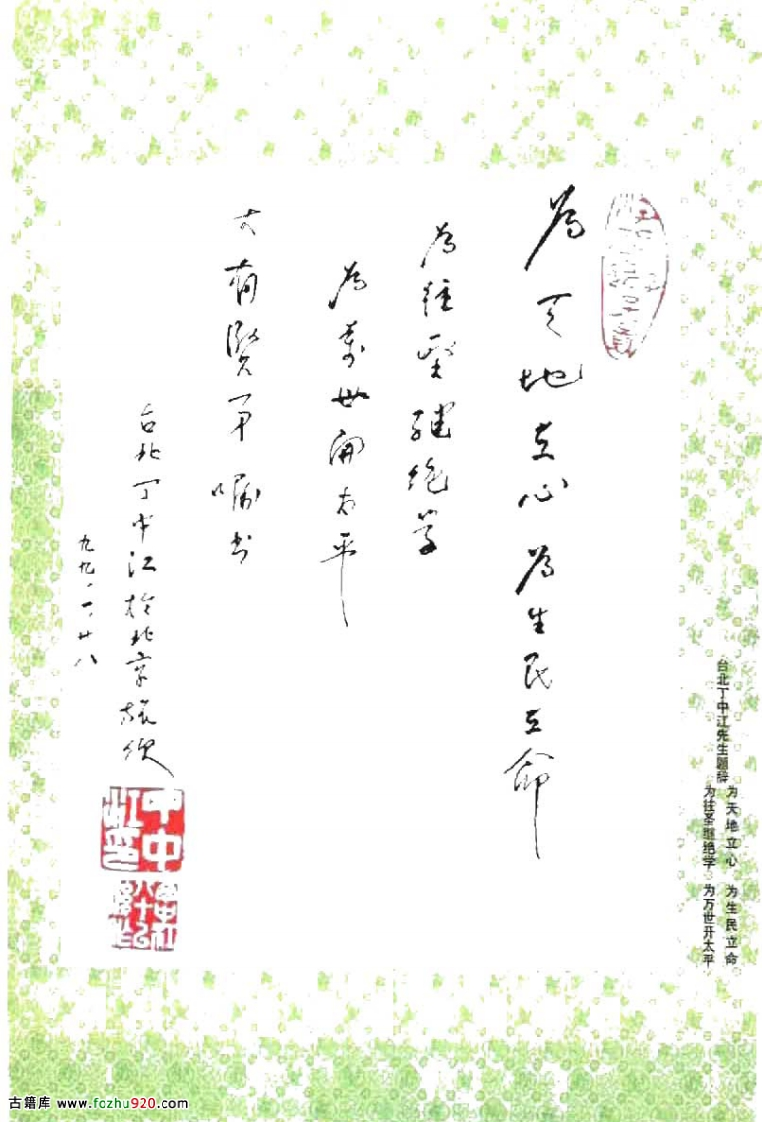 為天地立心 為生民立命
為往聖繼絕學
為萬世開太平
大有賢弟囑書
台北丁中江於北京旅次
九九、一、廿八
丁中江印
台北丁中江先生题辞
为天地立心 为生民立命
为往圣继绝学 为万世开太平
古籍库 www.fozhu920.com